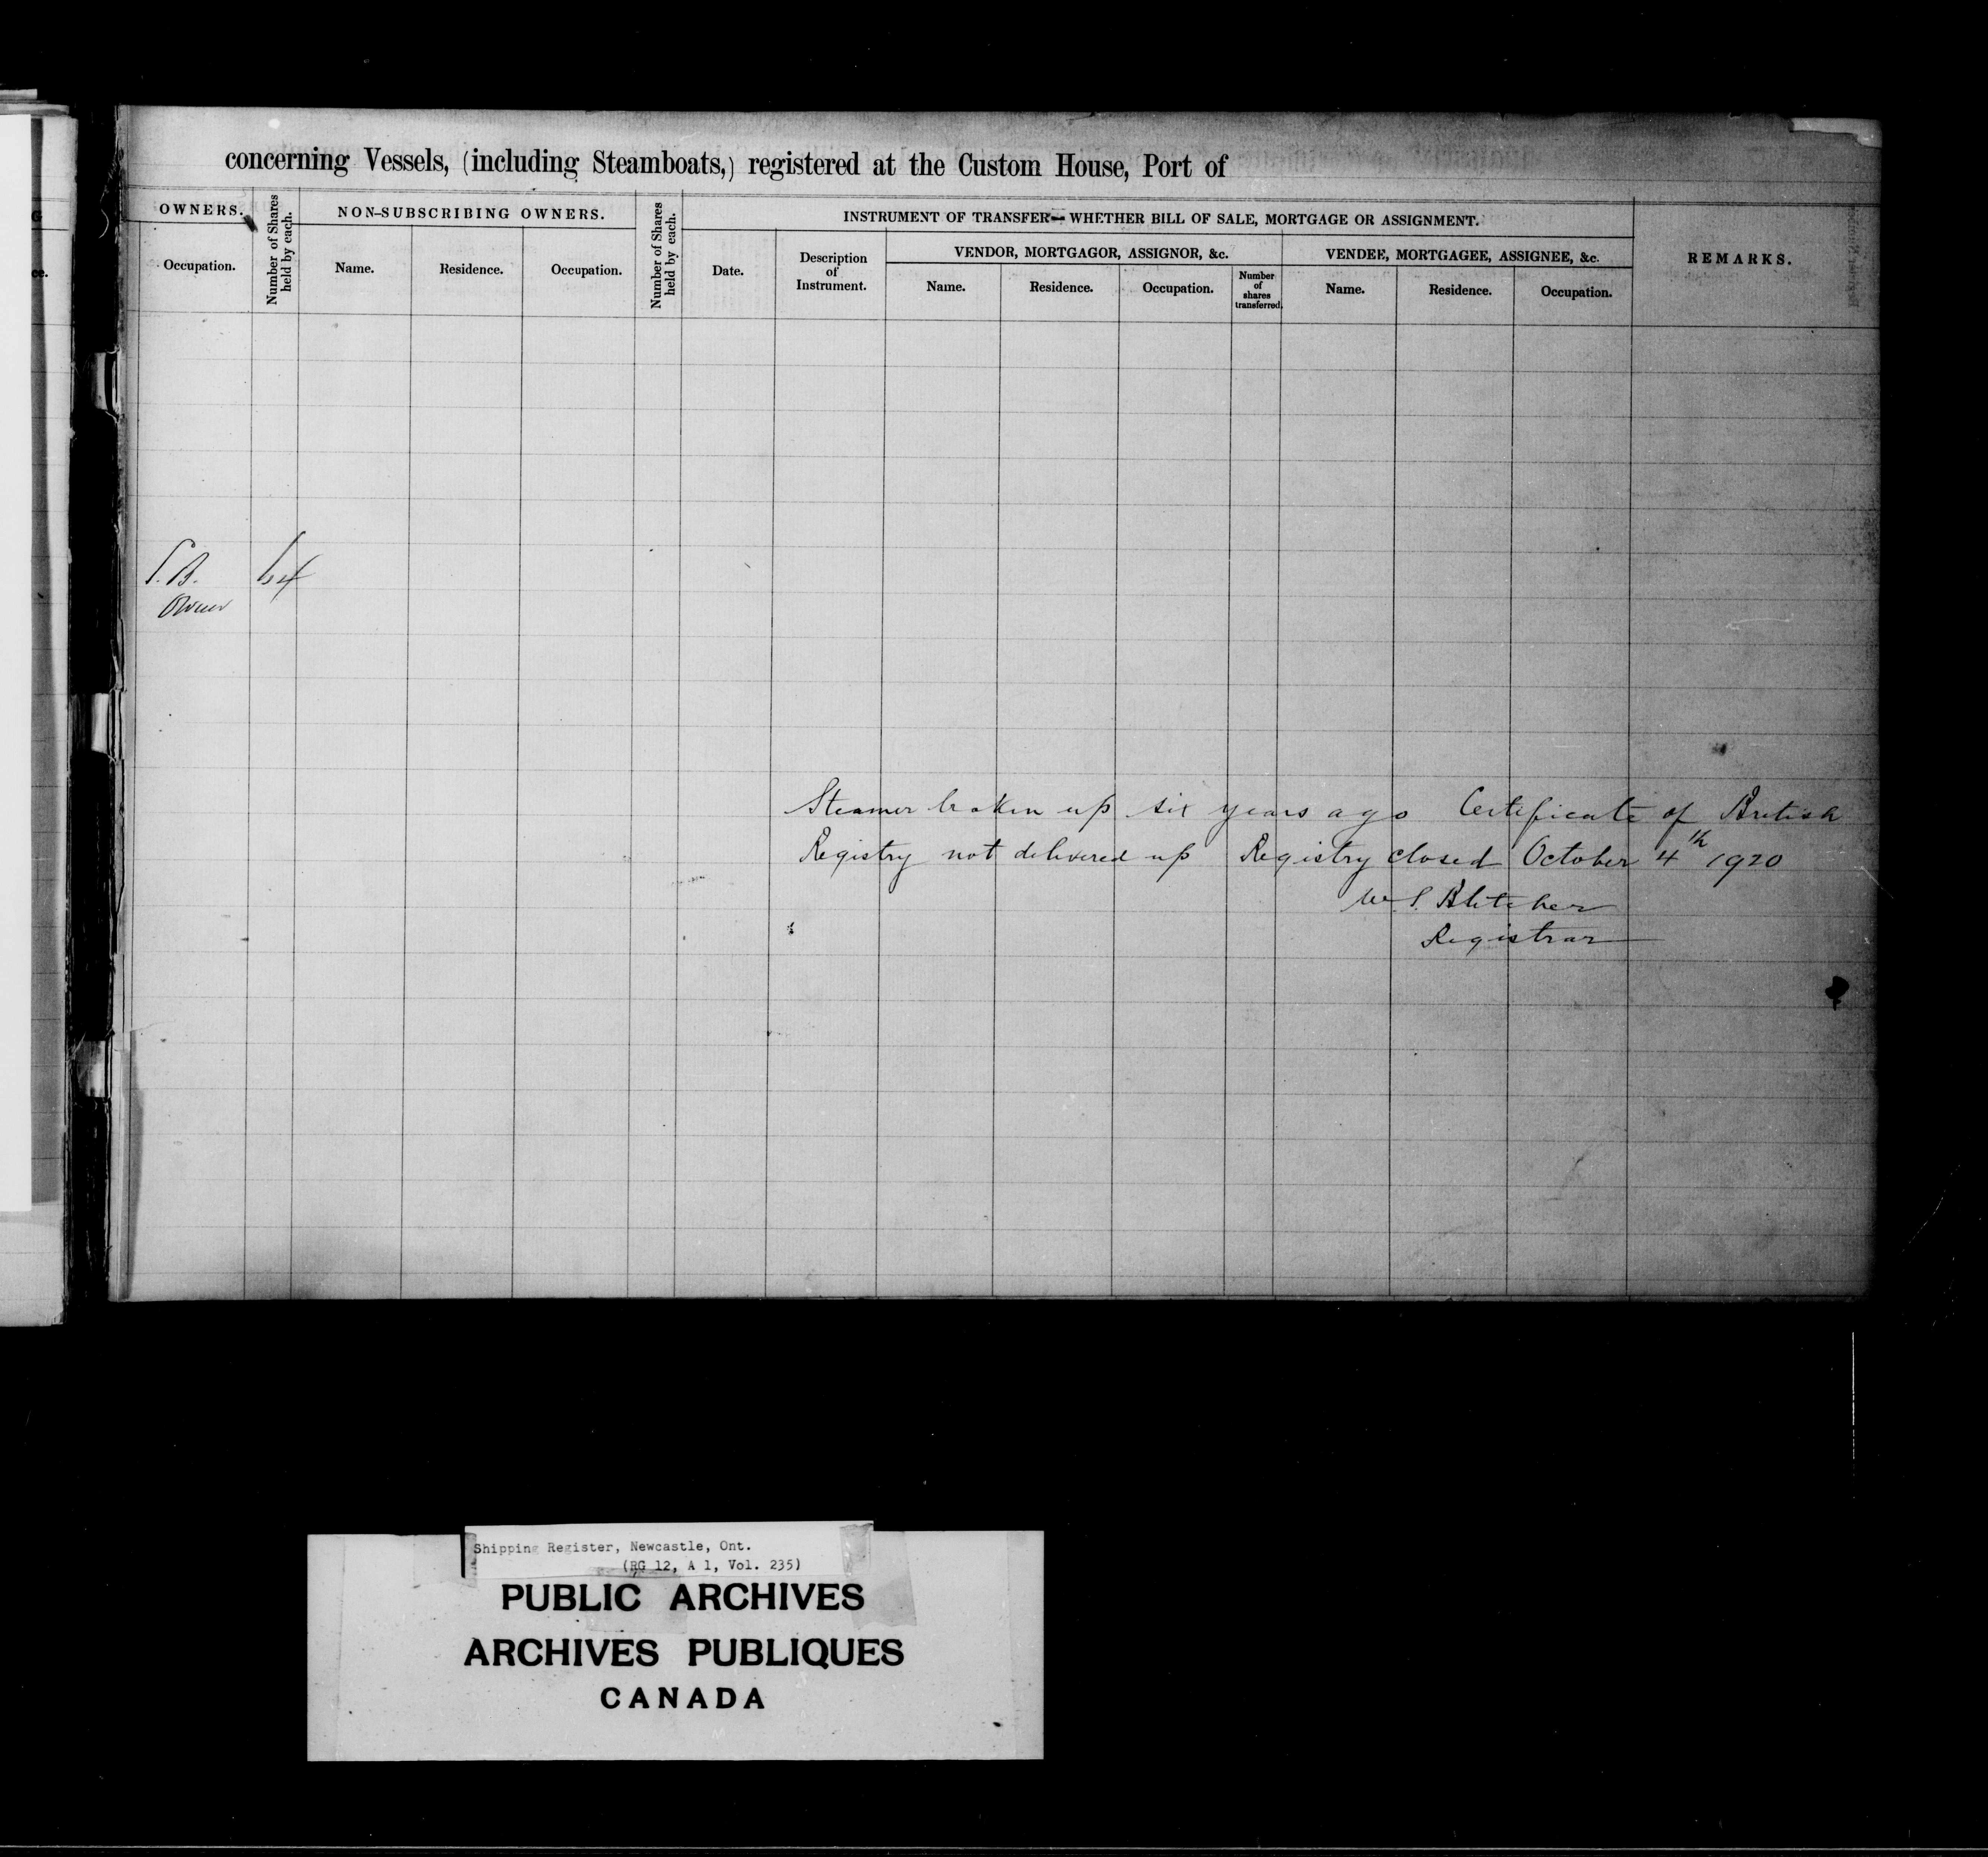 concerning Vessels, (including Steamboats,) registered at the Custom House, Port of
OWNERS.
Number of Shares held by each.
NON-SUBSCRIBING OWNERS.
Number of Shares held by each.
INSTRUMENT OF TRANSFER—WHETHER BILL OF SALE, MORTGAGE OR ASSIGNMENT.
REMARKS.
VENDOR, MORTGAGOR, ASSIGNOR, &c.
VENDEE, MORTGAGEE, ASSIGNEE, &c.
Occupation.
Name.
Residence.
Occupation.
Date.
Description
of
Instrument.
Name.
Residence.
Occupation.
Number
of
shares
transferred.
Name.
Residence.
Occupation.
S. B. 64
Owner
Steamer broken up six years ago Certificate of British
Registry not delivered up Registry closed October 4th 1920
Registrar
Shipping Register, Newcastle, Ont.
(RG 12, A 1, Vol. 235)
PUBLIC ARCHIVES
ARCHIVES PUBLIQUES
CANADA